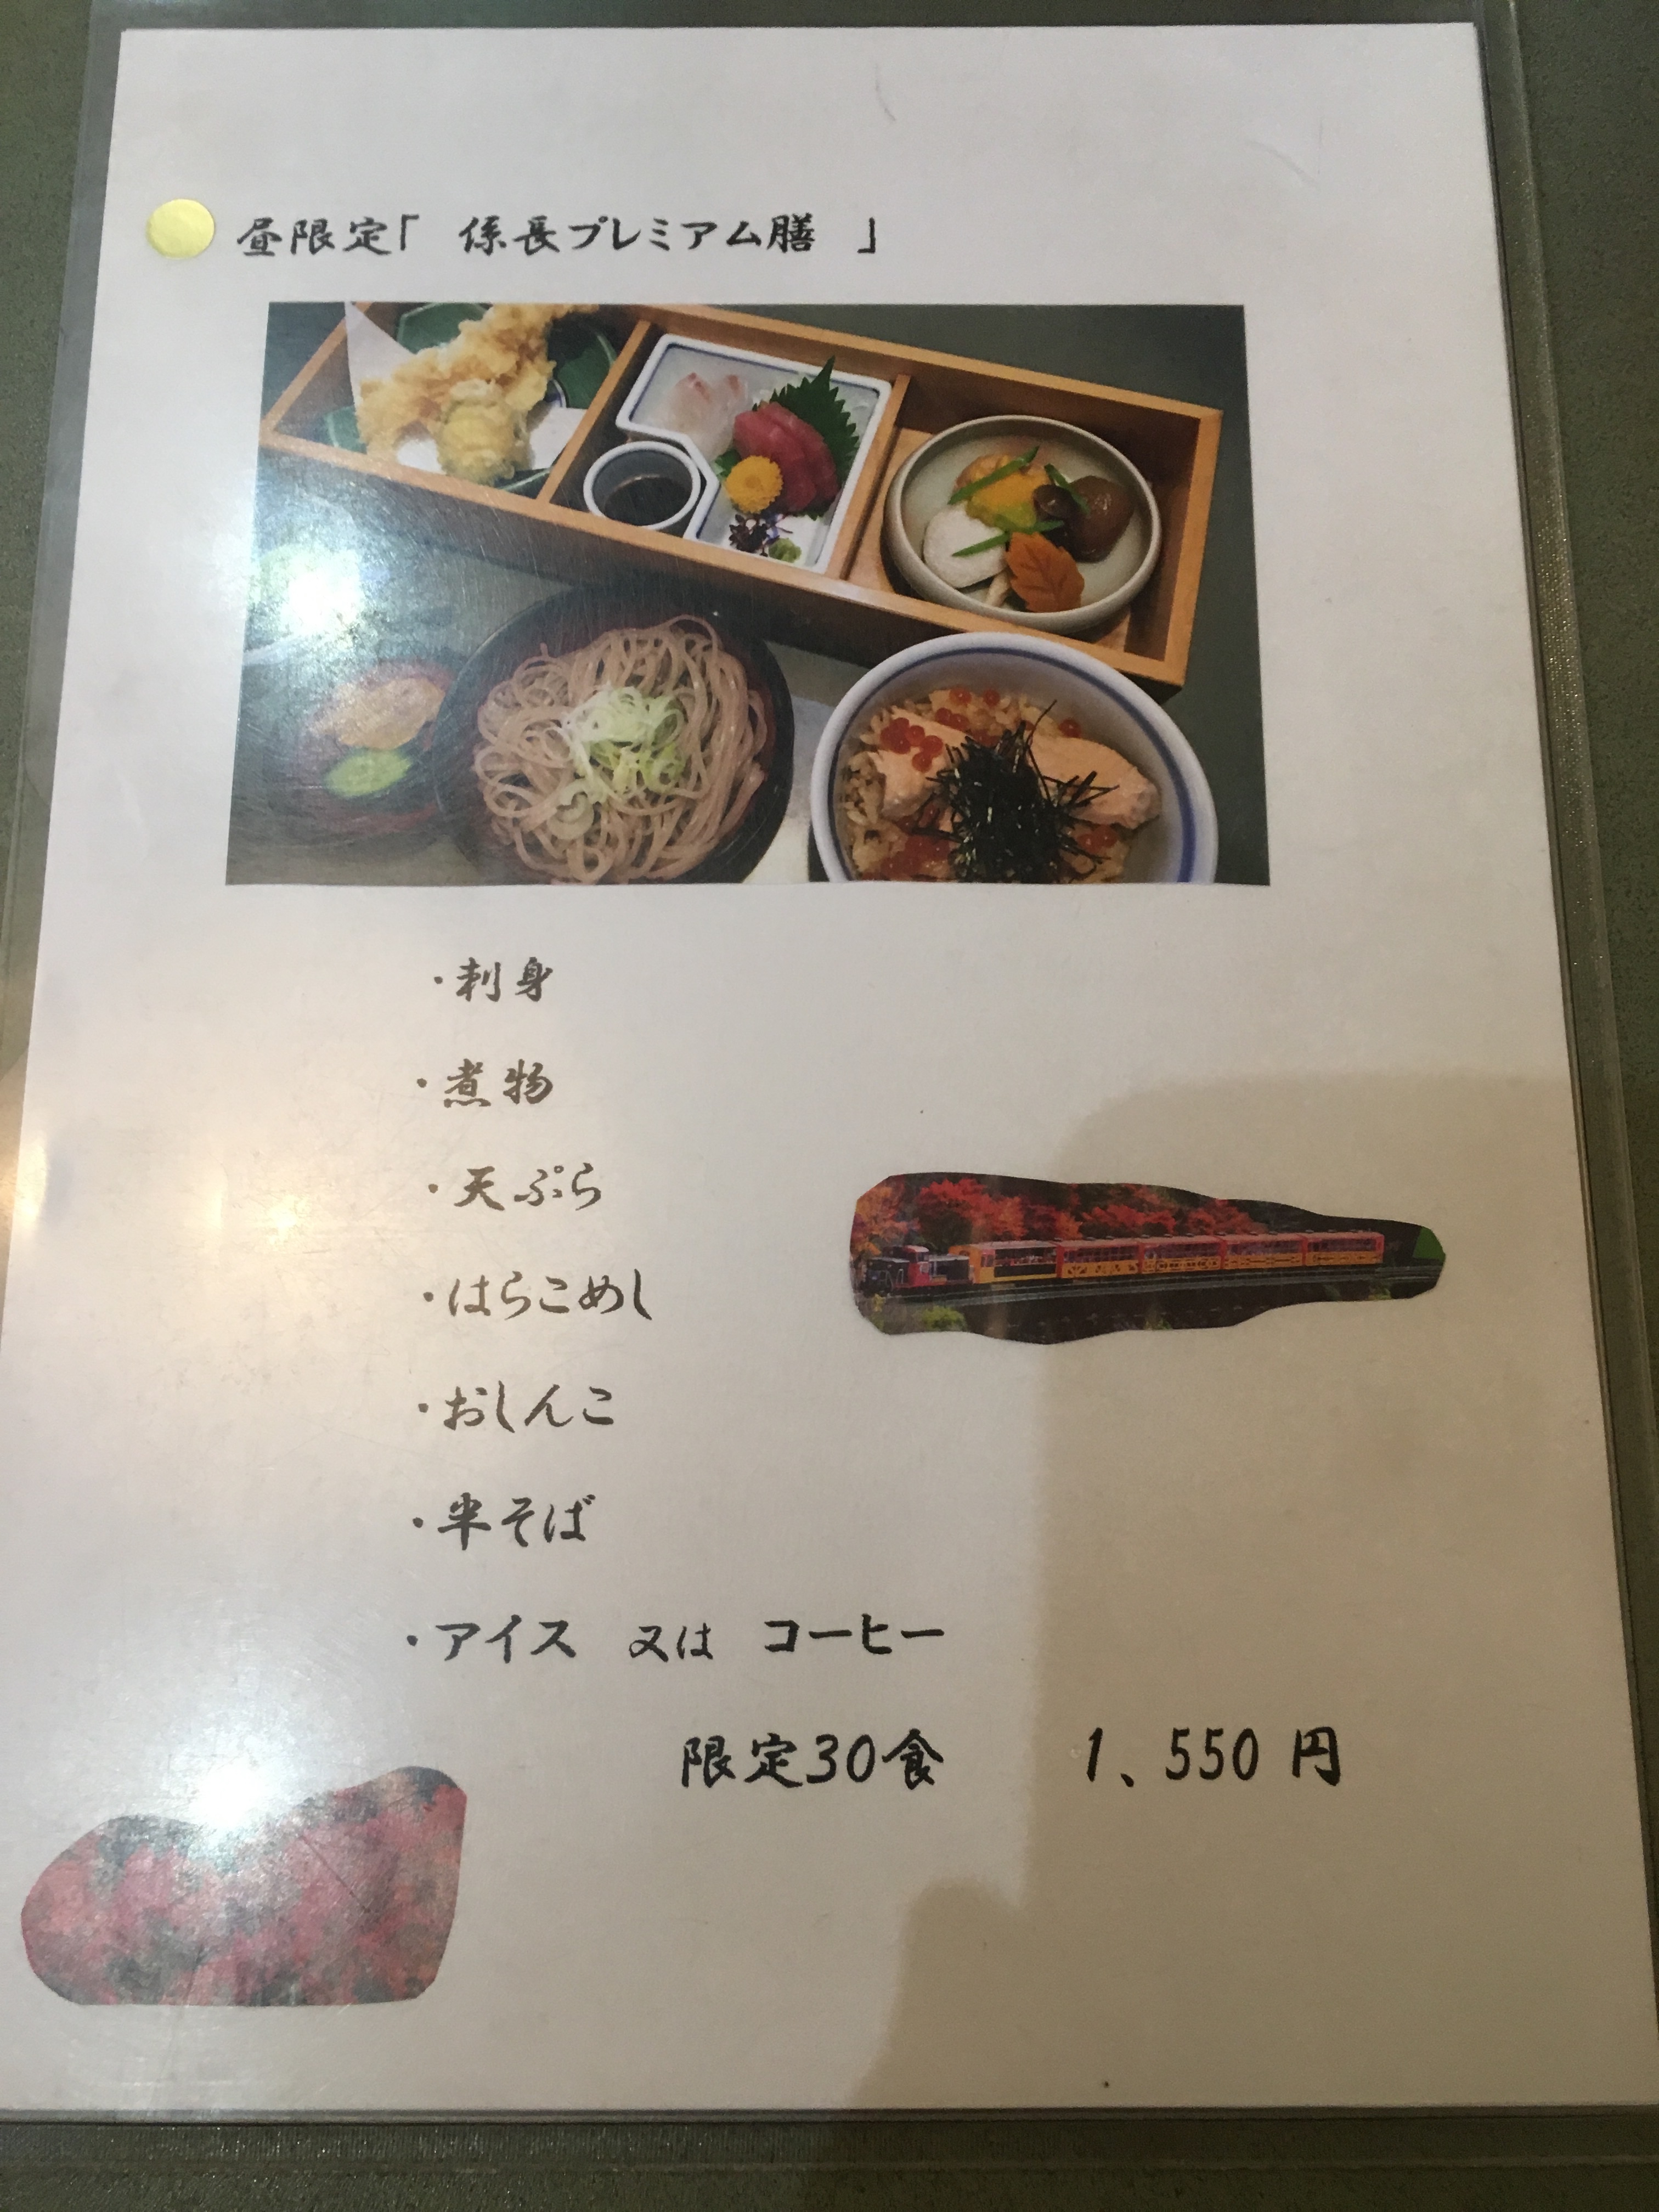 昼限定「 係長プレミアム膳 」
・刺身
・煮物
・天ぷら
・はらこめし
・おしんこ
・半そば
・アイス 又は コーヒー
限定30食 1、550 円